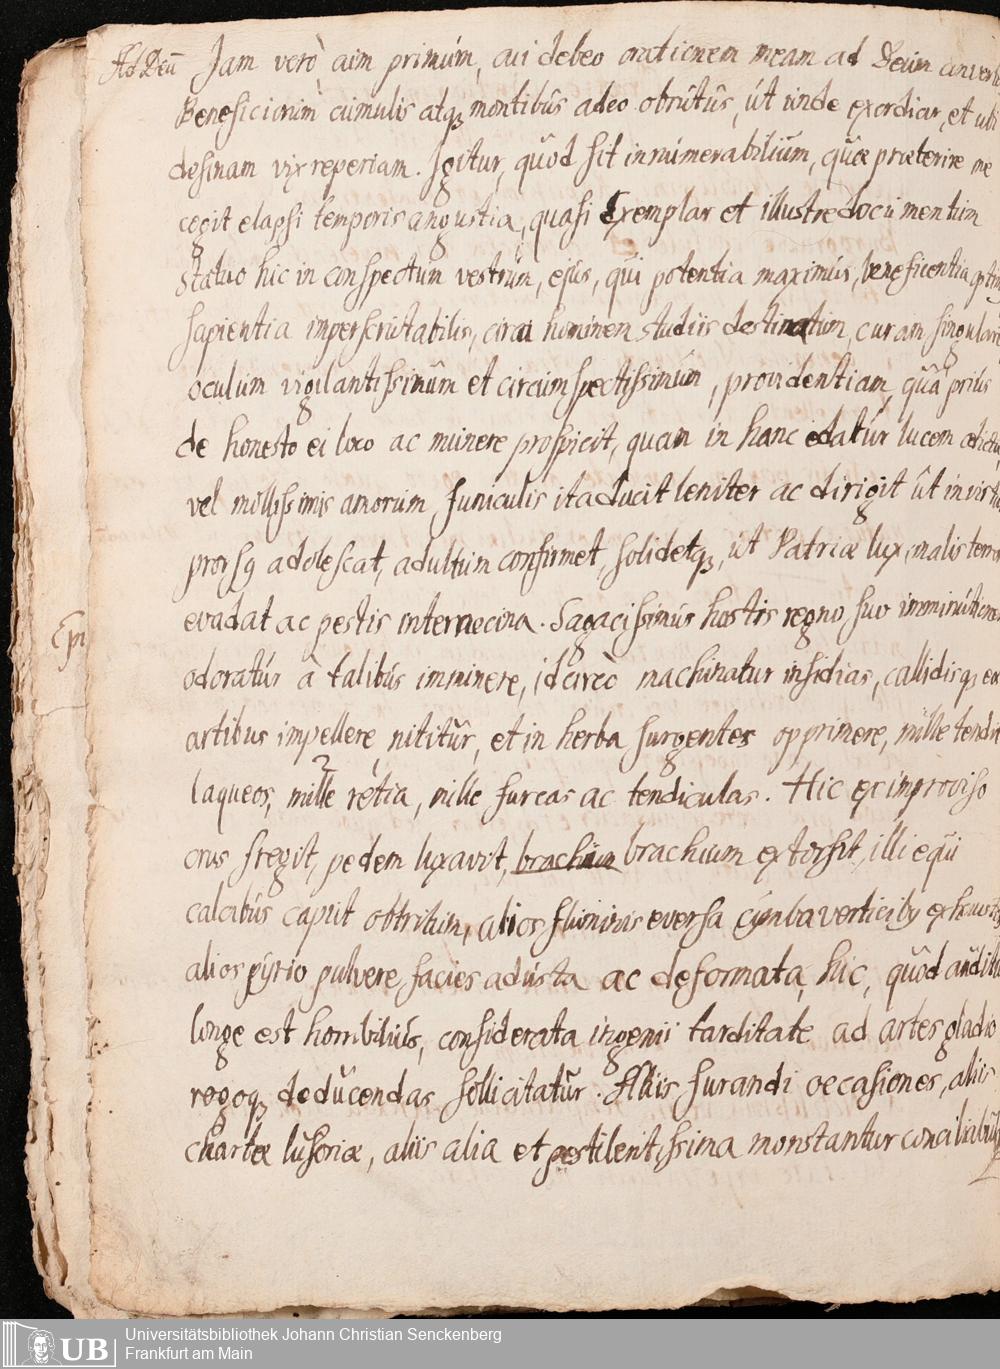 Ad Deū Jam verò cum primùm, cui debeo orationem meam ad Deum conver
Beneficiorum cumulis atq; montibûs adeo obrûtûs, ût unde exordiar, et ubi
desinam vix reperiam. Igitur, quòd sit innumerabilium, quæ præterire me
cogit elapsi temporis angustia, quasi Exemplar et illustre documentum
statuo hic in conspectum vestrûm, ejûs, qûi potentia maximûs, beneficentia optim
sapientia imperscrutabilis, circa hominem studiis destinatum curam singulare
oculum vigilantissimûm et circumspectissimûm, providentiam, quâ priûs
de honesto ei loco ac munere prospicit, quam in hanc edatûr lucem
vel mollissimis amorum funiculis ita ducit leniter ac dirigit ût in virtu
prorsg adolescat, adultum confirmet, solidetq;, ût Patriæ lux, malis terror
evadat ac pestis internecina. Sagacissimûs hostis regno suo imminûtionem
odoratûs â talibûs imminere, idcircò machinatur insidias, callidisq; ex
artibus impellere nititûr, et in herba surgentes opprimere, mille tendit
laqueos, mille retia, mille furcas ac tendiculas. Hic ex improviso
crus fregit, pedem luxavit, brachium brachium extorsit, illi equi
calcibûs capût obtritum, alios fluminis eversa cymba verticiby exhaust
alios pyrio pulvere facies adusta ac deformata, hic, quôd audit
longe est horribiliûs, considerata ingenii tarditate ad artes gladio
rogoq; dedûcendas sollicitatûr. Aliis furandi occasiones, aliis
chartæ lusoriæ, aliis alia et pestilentissima monstrantur conciliabul
Epi